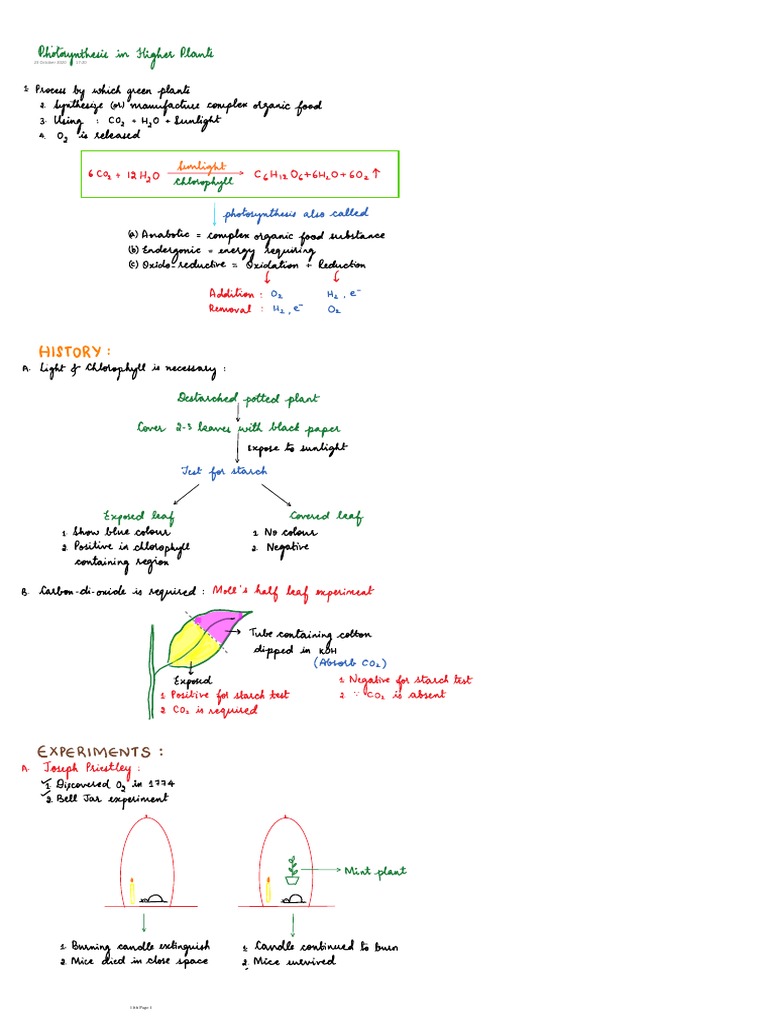 Photosynthesis in Higher Plants
24 October 2020 17:20
1. Process by which green plants
2. Synthesize (or) manufacture complex organic food
3. Using : CO₂ + H₂O + Sunlight
4. O₂ is released
6CO₂ + 12H₂O Sunlight Chlorophyll C₆H₁₂O₆+6H₂O+6O₂↑
photosynthesis also called
(a) Anabolic = complex organic food substance
(b) Endergonic = energy requiring
(c) Oxido-reductive = Oxidation + Reduction
Addition : O₂ H₂, e⁻
Removal : H₂, e⁻ O₂
HISTORY :
A. Light & Chlorophyll is necessary :
Destarched potted plant
Cover 2-3 leaves with black paper
Expose to sunlight
Test for starch
Exposed leaf
1. Show blue colour
2. Positive in chlorophyll
containing region
Covered leaf
1. No colour
2. Negative
B. Carbon-di-oxide is required : Moll's half leaf experiment
Tube containing cotton
dipped in KOH
(Absorb CO₂)
Exposed
1 Positive for starch test
2 CO₂ is required
1 Negative for starch test
2 ∵ CO₂ is absent
EXPERIMENTS :
A. Joseph Priestley :
1. Discovered O₂ in 1774
2. Bell Jar experiment
Mint plant
1. Burning candle extinguish
2. Mice died in close space
1. Candle continued to burn
2. Mice survived